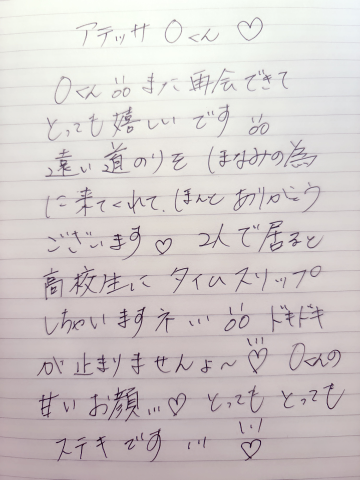 アテッサ Oくん ♡
Oくん また 再会できて
とっても 嬉しい です
遠い 道のりを ほなみの為
に 来てくれて、ほんと ありがとう
ございます♡ 2人で居ると
高校生に タイムスリップ
しちゃいますネ… ドキドキ
が 止まりませんょ〜♡ Oくんの
甘い お顔…♡ とっても とっても
ステキです … ♡